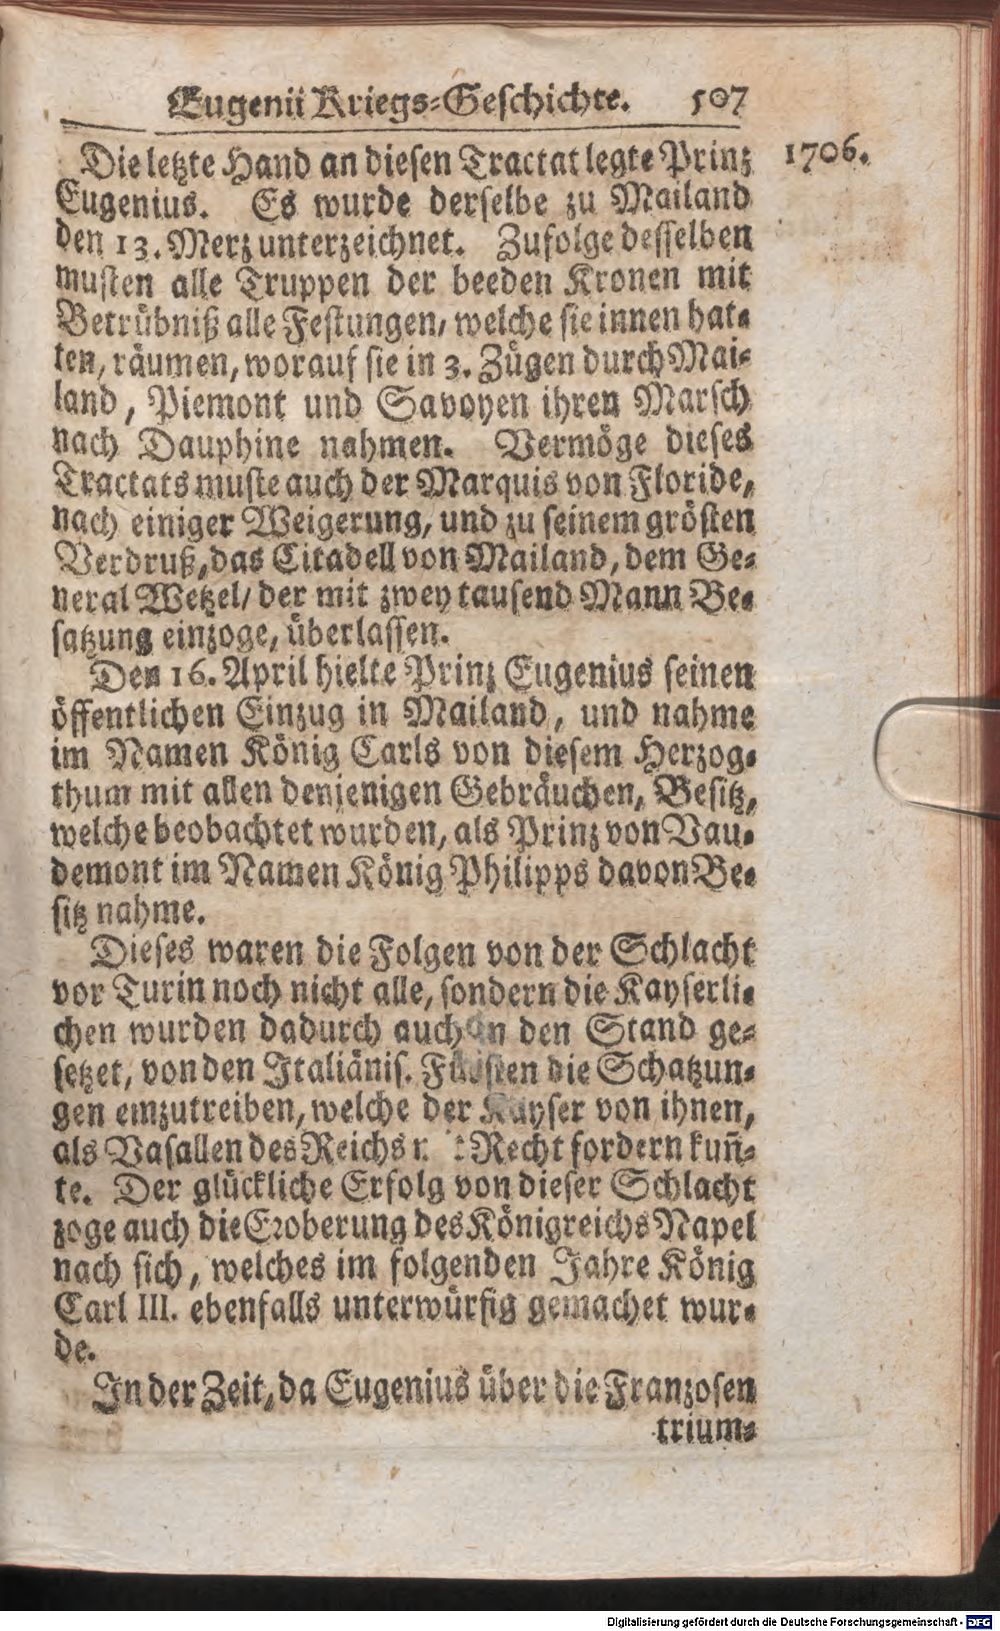 Eugenii Kriegs-Geschichte. 507
1706.
Die letzte Hand an diesen Tractat legte Prinz
Eugenius. Es wurde derselbe zu Mailand
den 13. Merz unterzeichnet. Zufolge desselben
musten alle Truppen der beeden Kronen mit
Betrübniß alle Festungen, welche sie innen hat-
ten, räumen, worauf sie in 3. Zügen durch Mai-
land, Piemont und Savoyen ihren Marsch
nach Dauphine nahmen. Vermöge dieses
Tractats muste auch der Marquis von Floride,
nach einiger Weigerung, und zu seinem grösten
Verdruß, das Citadell von Mailand, dem Ge-
neral Wetzel, der mit zwey tausend Mann Be-
satzung einzoge, überlassen.
Den 16. April hielte Prinz Eugenius seinen
öffentlichen Einzug in Mailand, und nahme
im Namen König Carls von diesem Herzog-
thum mit allen denjenigen Gebräuchen, Besitz,
welche beobachtet wurden, als Prinz von Vau-
demont im Namen König Philipps davon Be-
sitz nahme.
Dieses waren die Folgen von der Schlacht
vor Turin noch nicht alle, sondern die Kayserli-
chen wurden dadurch auch in den Stand ge-
setzet, von den Italiänis. Fürsten die Schatzun-
gen einzutreiben, welche der Kayser von ihnen,
als Vasallen des Reichs Recht fordern kun̄-
te. Der glückliche Erfolg von dieser Schlacht
zoge auch die Eroberung des Königreichs Napel
nach sich, welches im folgenden Jahre König
Carl III. ebenfalls unterwürfig gemachet wur-
de.
In der Zeit, da Eugenius über die Franzosen
trium-
Digitalisierung gefördert durch die Deutsche Forschungsgemeinschaft - DFG